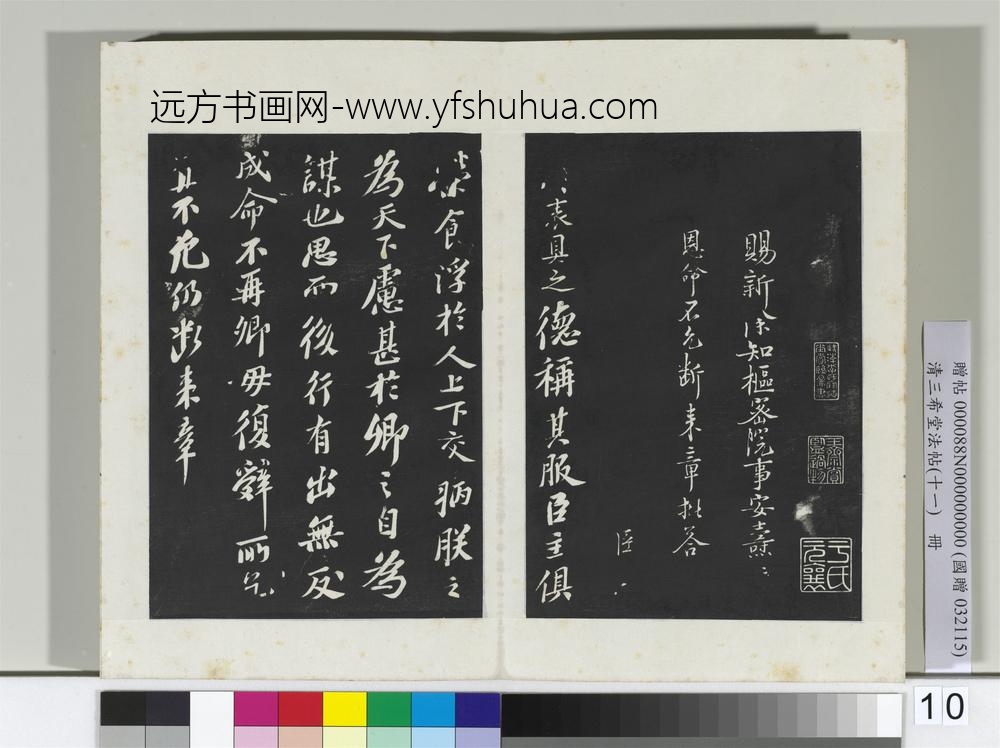 远方书画网-www.yfshuhua.com
賜新除知樞密院事安燾
恩命不允斷來章批荅
臣
袞具之德稱其服臣主俱
榮食浮於人上下交病朕之
為天下慮甚於卿之自為
謀也思而後行有出無反
成命不再卿毋復辭所乞
宜不允仍斷來章
贈帖 000088N000000000 (國贈 032115)
清三希堂法帖(十一) 冊
10